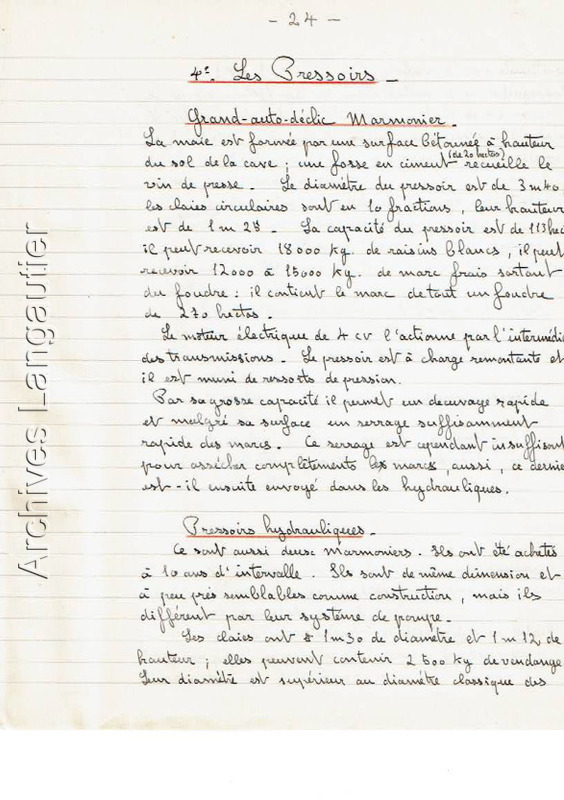 - 24 -
4°. Les Pressoirs -
Grand-auto-déclic Marmonier.
La maie est formée par une surface bétonnée à hauteur
du sol de la cave ; une fosse en ciment (de 20 hectos) recueille le
vin de presse. Le diamètre du pressoir est de 3m40
les claies circulaires sont en 10 fractions, leur hauteur
est de 1m 28. La capacité du pressoir est de 113 hec
il peut recevoir 18000 kg. de raisins blancs, il peut
recevoir 12000 à 15000 kg. de marc frais sortant
du foudre : il contient le marc de tout un foudre
de 270 hectos.
Le moteur électrique de 4 cv l'actionne par l'intermédi
des transmissions. Le pressoir est à charge remontante et
il est muni de ressorts de pression.
Par sa grosse capacité il permet un décuvage rapide
et malgré sa surface un serrage suffisamment
rapide des marcs. Ce serrage est cependant insuffisant
pour assécher complètements les marcs, aussi, ce dernier
est-il ensuite envoyé dans les hydrauliques.
Pressoirs hydrauliques.
Ce sont aussi deux Marmoniers. Ils ont été achetés
à 10 ans d'intervalle. Ils sont de même dimension et
à peu près semblables comme construction, mais ils
diffèrent par leur système de pompe.
Les claies ont 1m30 de diamètre et 1m12 de
hauteur ; elles peuvent contenir 2500 kg de vendange
Leur diamètre est supérieur au diamètre classique des
Archives Langautier